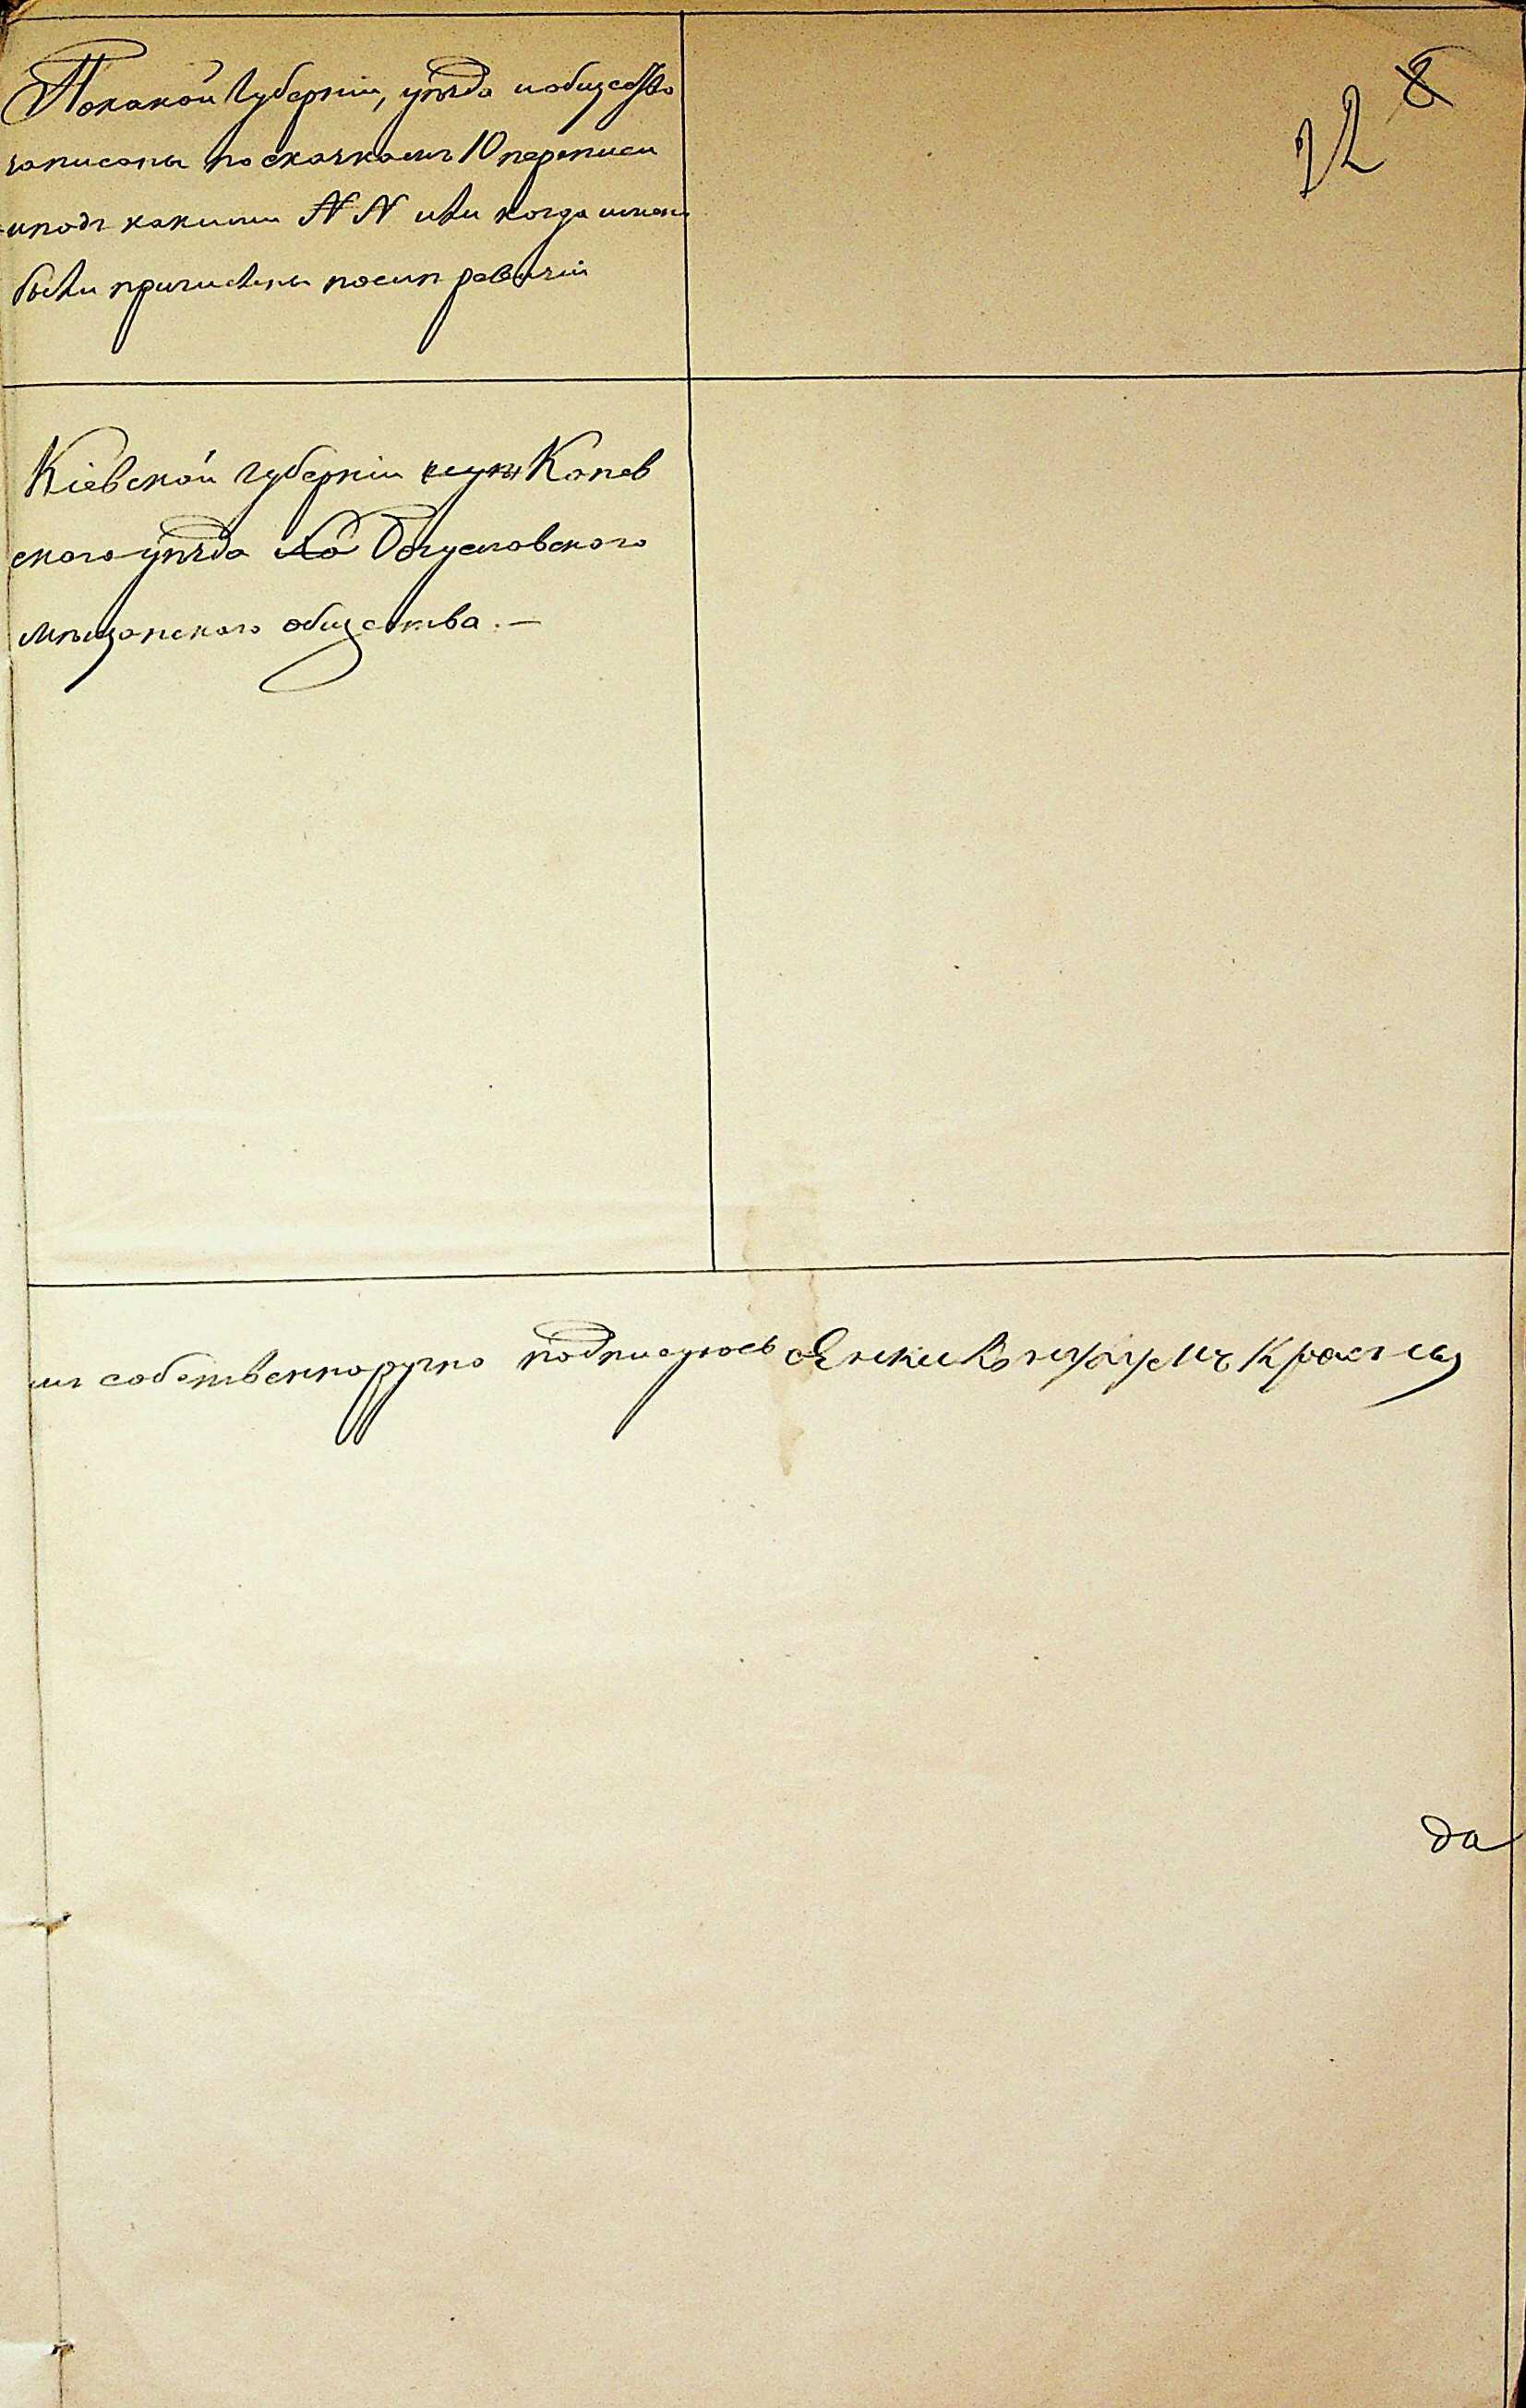 22 8
По какой Губерніи, уѣзда и общества
записаны по сказкамъ 10 переписи
и подъ какими NN или когда именно
были причислены после ревизіи
Кіевской губерніи Канев
ского уѣзда Богуславского
мѣщанского общества. —
мъ собственноручно подписуюсь
да